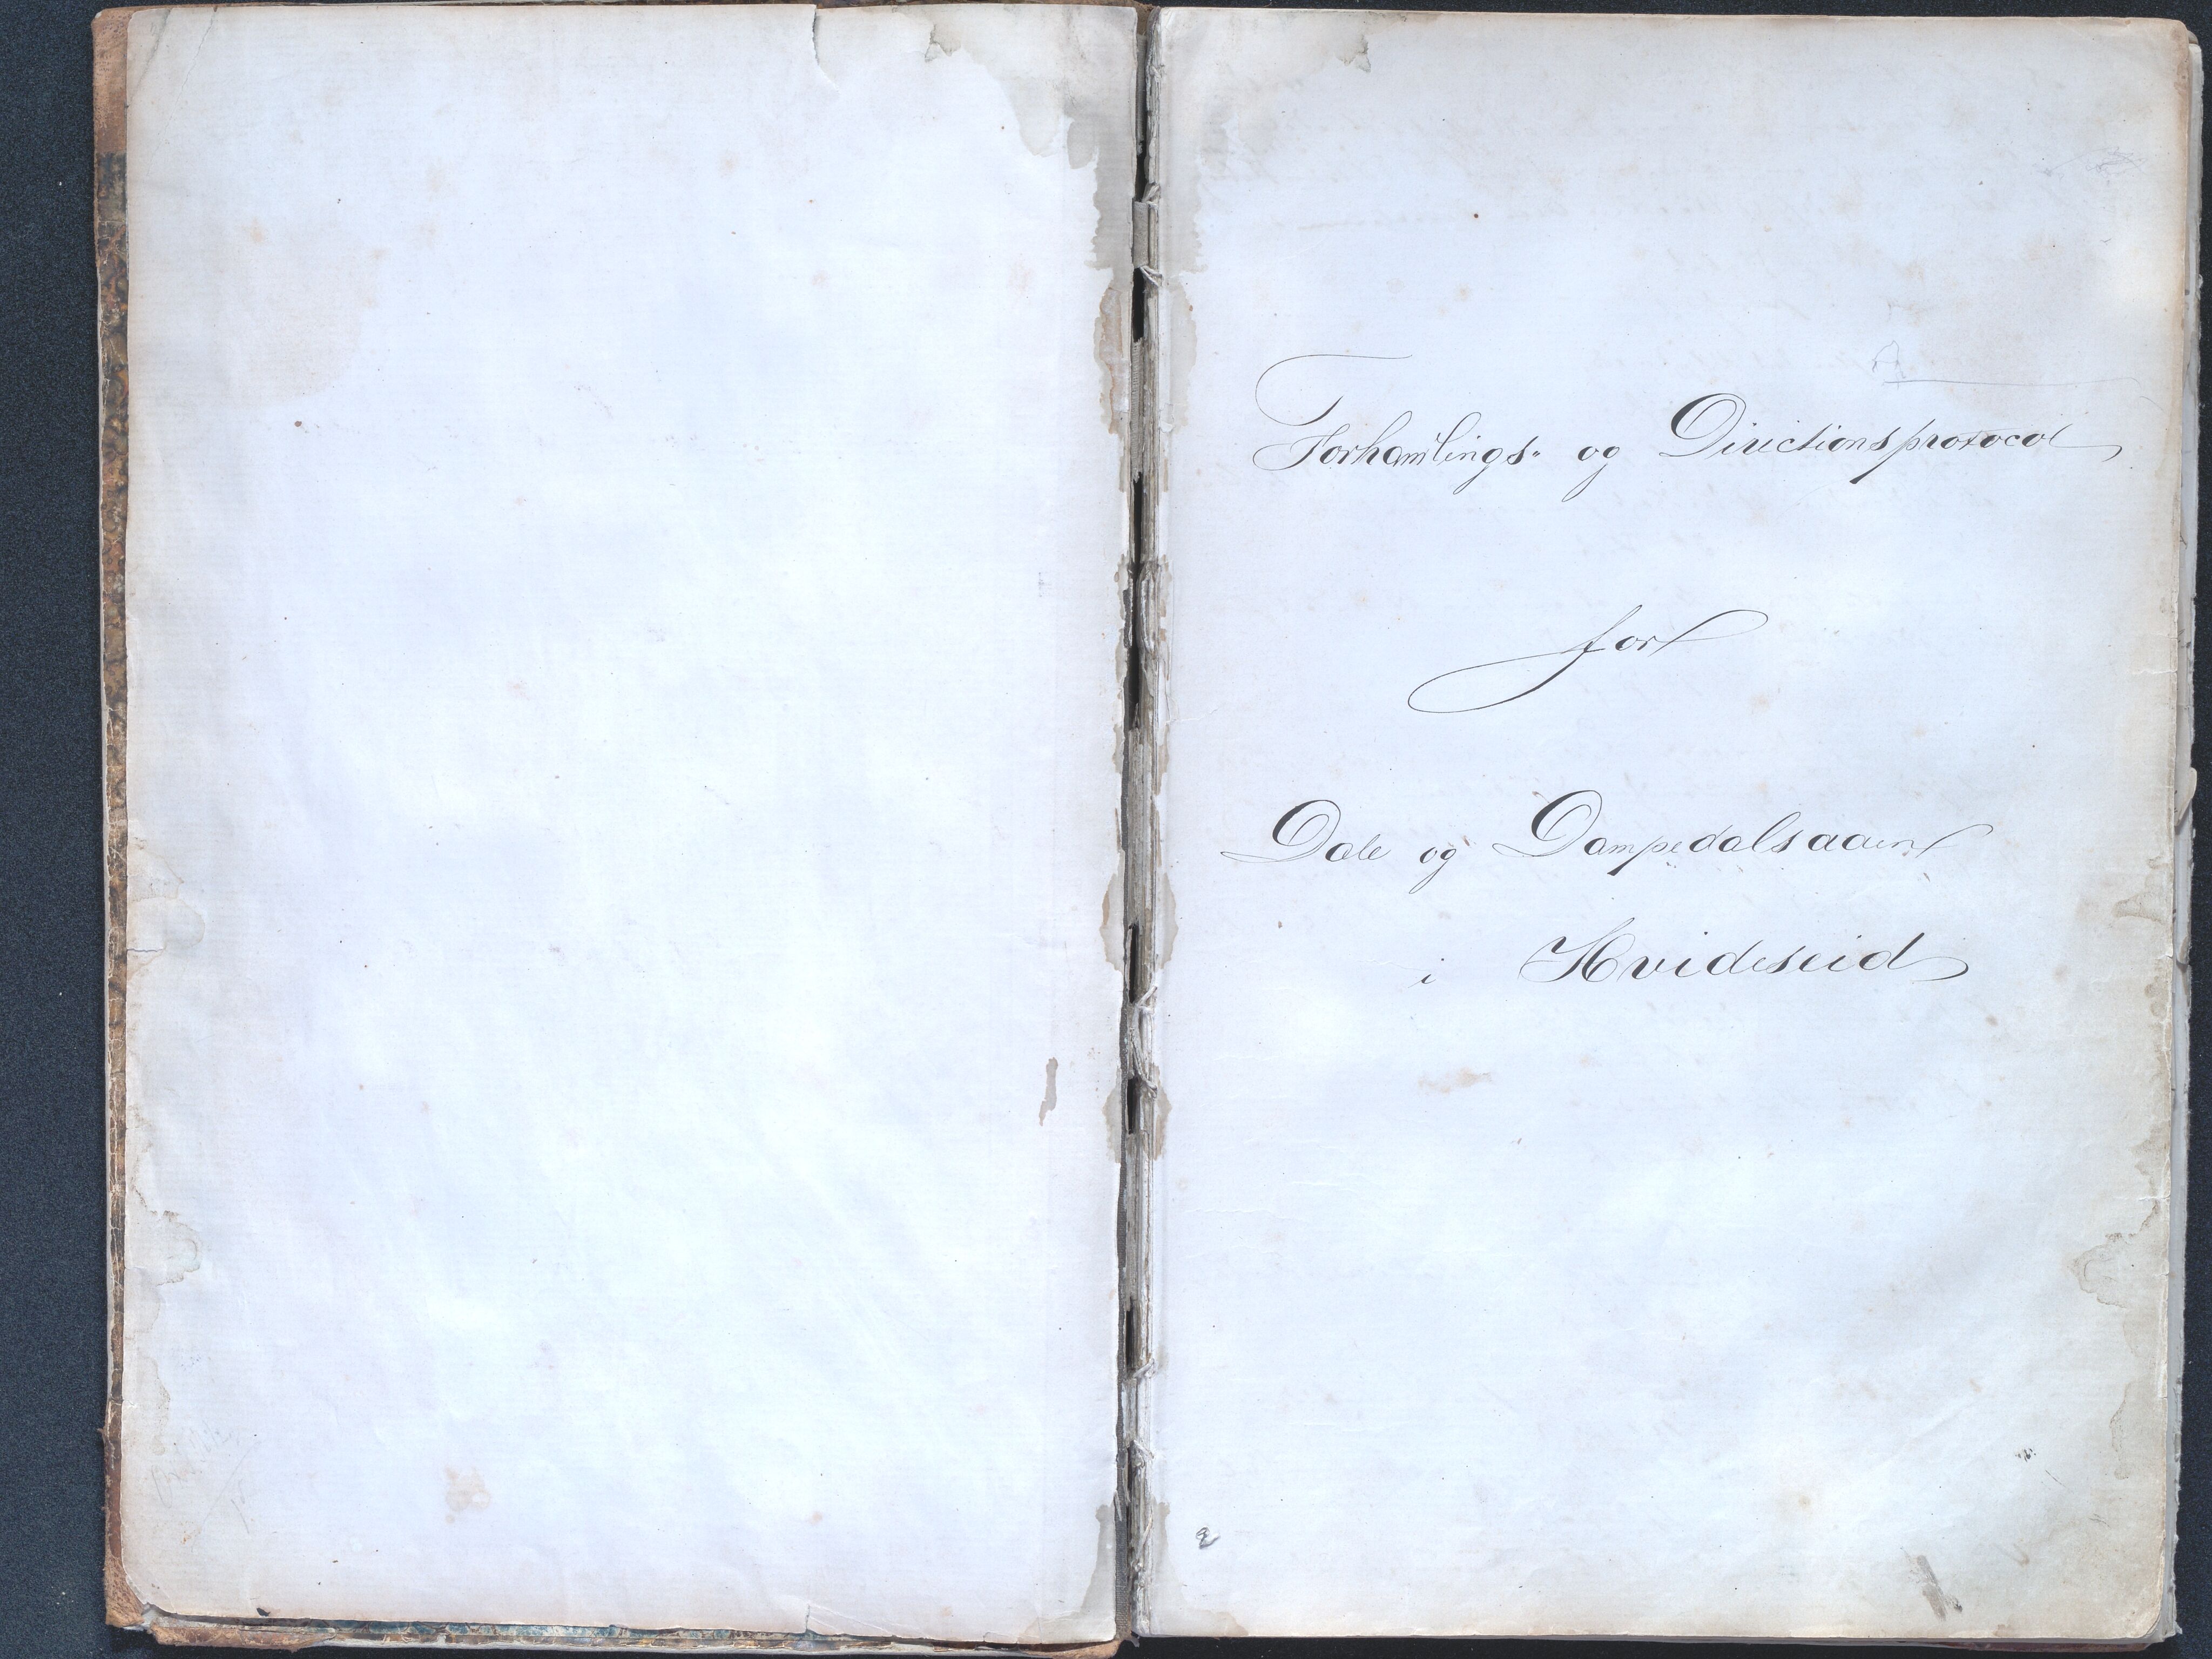 Forhamlings- og Directionsprotocol
for
Dale og Dampedalsaaen
i Hvideseid